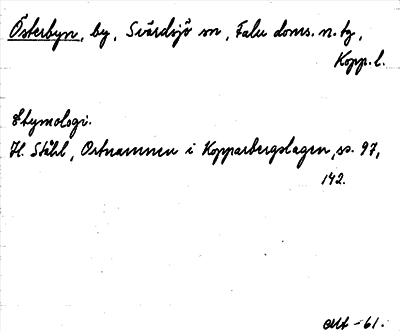 Österbyn, by, Svärdsjö sn, Falu doms. n. tg,
Kopp. l.
Etymologi.
H. Ståhl, Ortnamnen i Kopparbergslagen, ss. 97,
142.
-61.